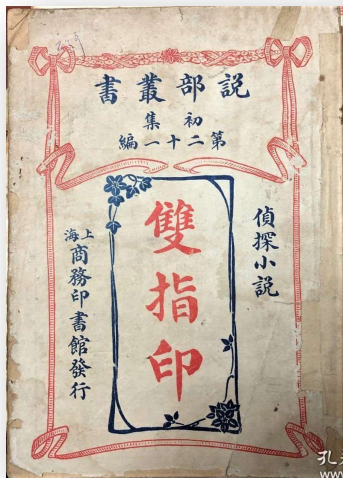 説部叢書
初集
第二十一編
偵探小説
雙指印
上海
商務印書館發行
孔
www